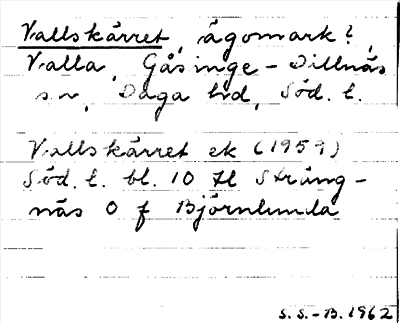 Vallskärret, ägomark?,
Valla, Gåsinge-Dillnäs
sn, Daga hd, Söd. l.
Vallskärret ek (1959)
Söd. l. bl. 10 Hl Sträng-
näs O f Björnlunda
S.S.-B. 1962